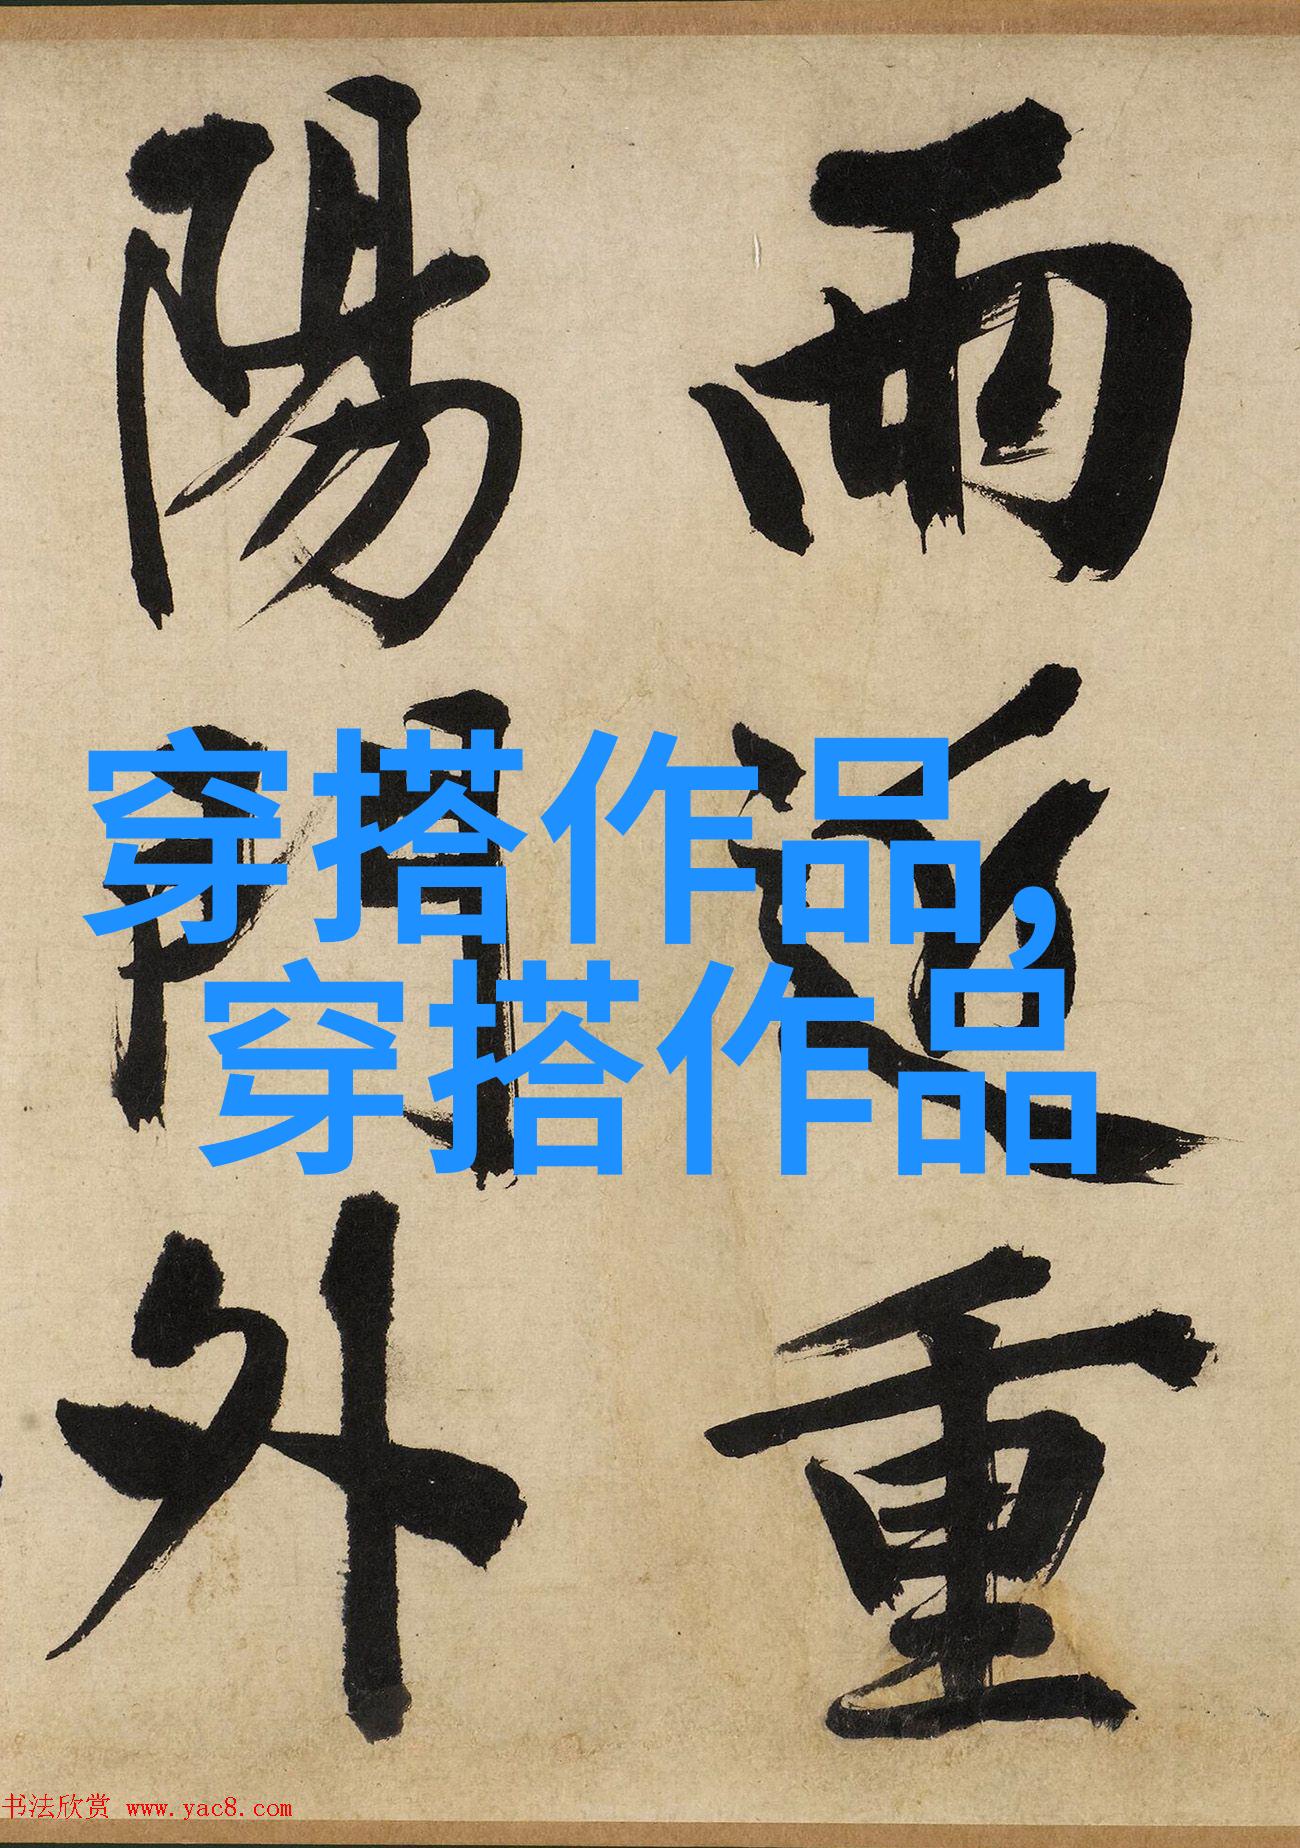 雨近重
陽門外
穿搭作品,
穿搭作品
书法欣赏 www.yac8.com